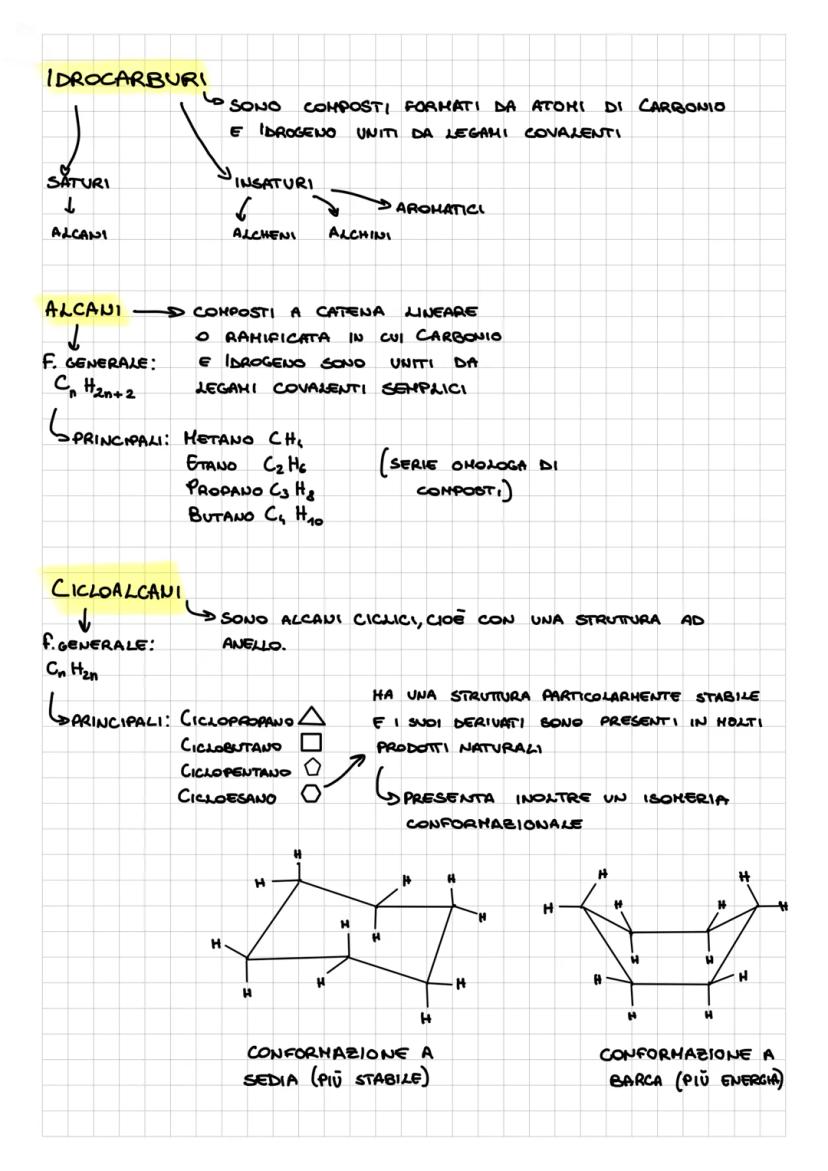 IDROCARBURI
SONO COMPOSTI FORMATI DA ATOMI DI CARBONIO
E IDROGENO UNITI DA LEGAMI COVALENTI
SATURI
INSATURI
AROMATICI
ALCANI
ALCHENI
ALCHINI
ALCANI
COMPOSTI A CATENA LINEARE
O RAMIFICATA IN CUI CARBONIO
E IDROGENO SONO UNITI DA
LEGAMI COVALENTI SEMPLICI
F. GENERALE:
CnH2n+2
PRINCIPALI: METANO CH4
ETANO C2H6
PROPANO C3H8
BUTANO C4H10
(SERIE OMOLOGA DI
COMPOSTI)
CICLOALCANI
SONO ALCANI CICLICI, CIOÈ CON UNA STRUTTURA AD
ANELLO.
F. GENERALE:
CnH2n
PRINCIPALI: CICLOPROPANO
CICLOBUTANO
CICLOPENTANO
CICLOESANO
HA UNA STRUTTURA PARTICOLARMENTE STABILE
E I SUOI DERIVATI SONO PRESENTI IN MOLTI
PRODOTTI NATURALI
PRESENTA INOLTRE UN ISOMERIA
CONFORMAZIONALE
H
H
H
H
H
H
H
H
H
H
H
H
CONFORMAZIONE A
SEDIA (PIÙ STABILE)
H
H
H
H
H
H
H
H
H
H
H
H
CONFORMAZIONE A
BARCA (PIÙ ENERGIA)